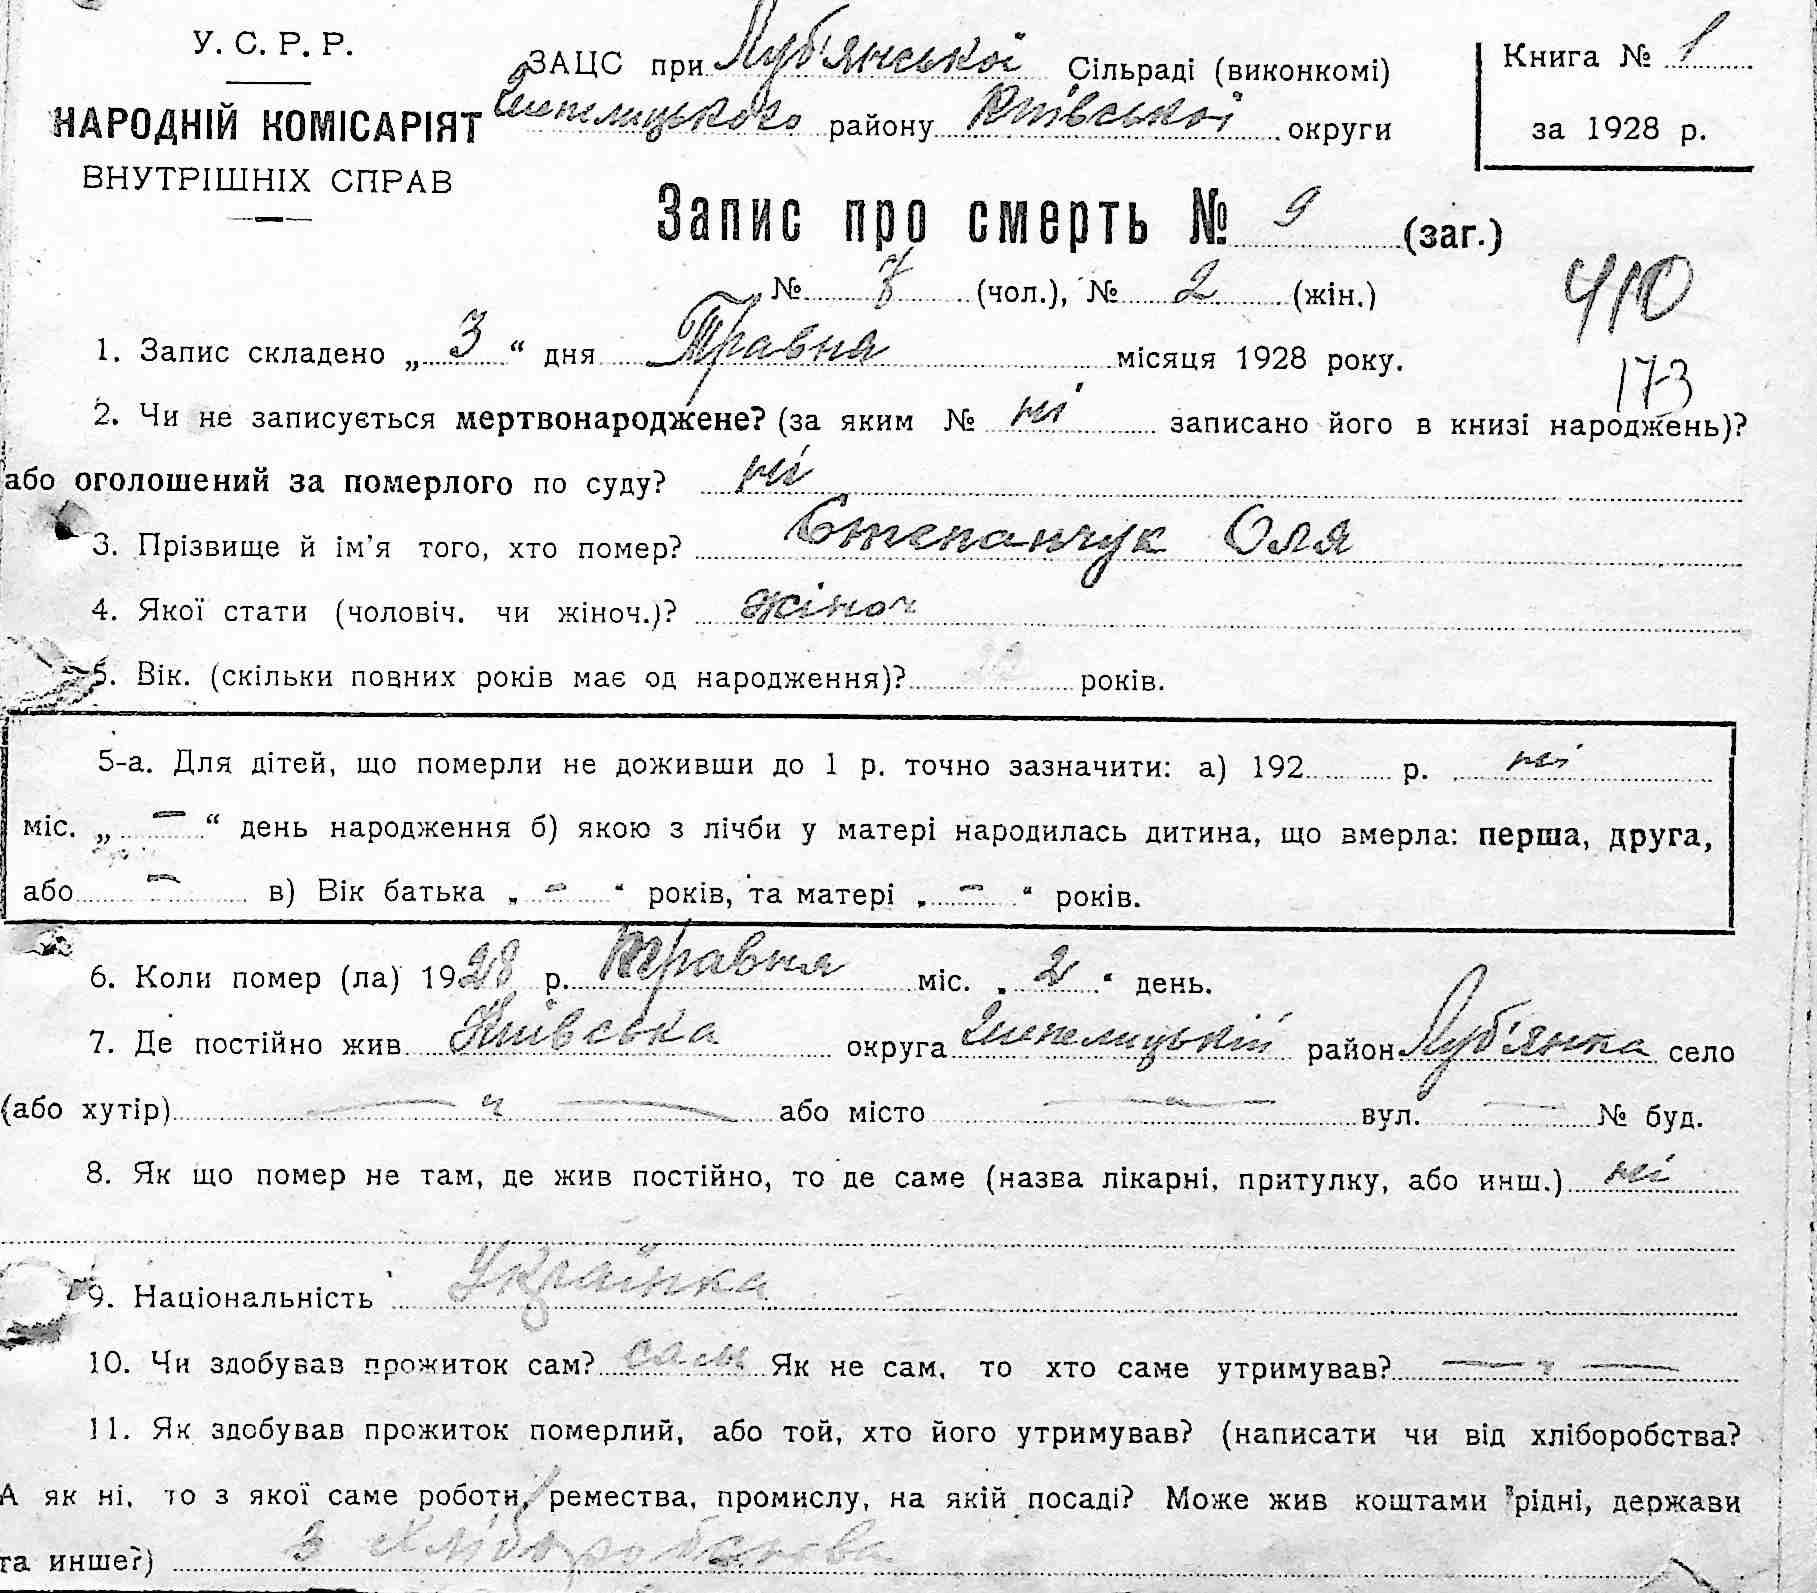 У. С. Р. Р.
НАРОДНІЙ КОМІСАРІЯТ
ВНУТРІШНІХ СПРАВ
ЗАЦС при Луб'янської Сільраді (виконкомі)
Шепелицького району Київської округи
Книга № 1
за 1928 р.
Запис про смерть № 9 (заг.)
№ 7 (чол.), № 2 (жін.)
410
1. Запис складено „ 3 “ дня Травня місяця 1928 року.
173
2. Чи не записується мертвонароджене? (за яким № ні записано його в книзі народжень)?
або оголошений за померлого по суду? ні
3. Прізвище й ім'я того, хто помер? Степанчук Оля
4. Якої стати (чоловіч. чи жіноч.)? жіноч
5. Вік. (скільки повних років має од народження)? років.
5-а. Для дітей, що померли не доживши до 1 р. точно зазначити: а) 192 р. ні
міс. „ — “ день народження б) якою з лічби у матері народилась дитина, що вмерла: перша, друга,
або — в) Вік батька „ — “ років, та матері „ — “ років.
6. Коли помер (ла) 1928 р. Травня міс. „ 2 “ день.
7. Де постійно жив Київська округа Шепелицькій район Луб'янка село
(або хутір) — " — або місто — вул. — № буд.
8. Як що помер не там, де жив постійно, то де саме (назва лікарні, притулку, або инш.) ні
9. Національність Українка
10. Чи здобував прожиток сам? сам Як не сам, то хто саме утримував? — " —
11. Як здобував прожиток померлий, або той, хто його утримував? (написати чи від хліборобства?
А як ні, то з якої саме роботи, ремества, промислу, на якій посаді? Може жив коштами рідні, держави
та инше?) З хліборобства